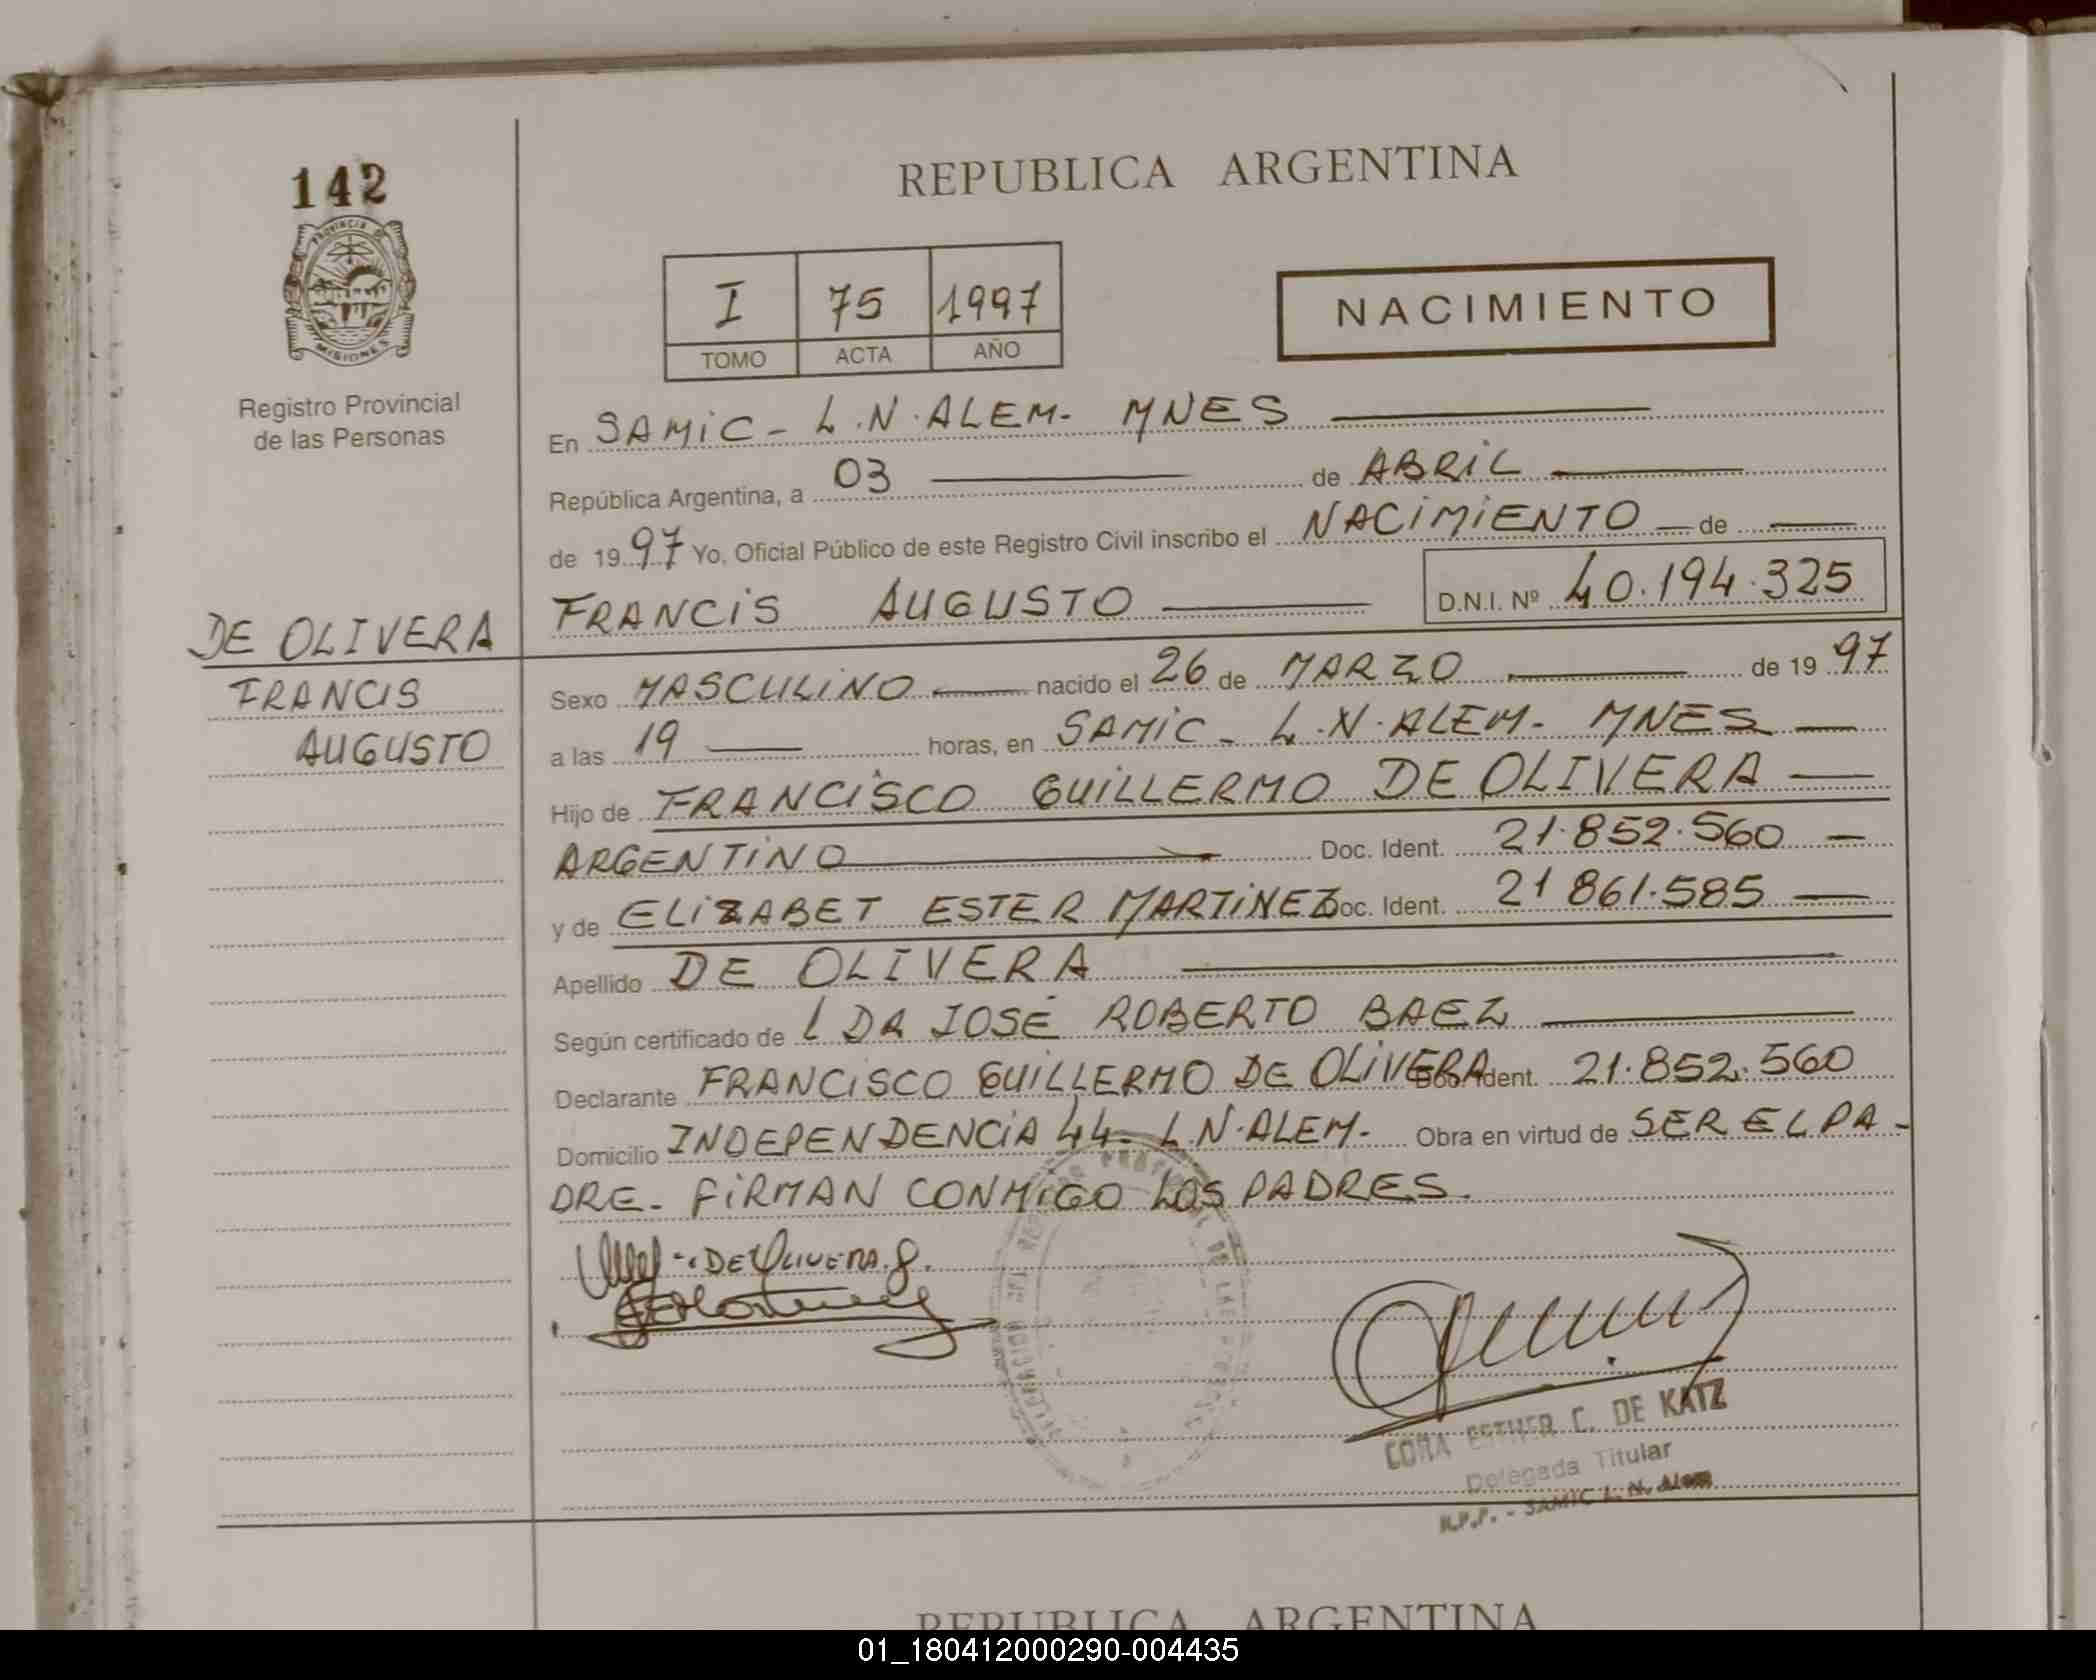 142
PROVINCIA DE
MISIONES
Registro Provincial
de las Personas
DE OLIVERA
FRANCIS
AUGUSTO
REPUBLICA ARGENTINA
I 75 1997
TOMO ACTA AÑO
NACIMIENTO
En SAMIC - L.N. ALEM - MNES
República Argentina, a 03 de ABRIL
de 19 97 Yo, Oficial Público de este Registro Civil inscribo el NACIMIENTO de
FRANCIS AUGUSTO D.N.I. Nº 40.194.325
Sexo MASCULINO nacido el 26 de MARZO de 19 97
a las 19 horas, en SAMIC - L.N. ALEM - MNES
Hijo de FRANCISCO GUILLERMO DE OLIVERA
ARGENTINO Doc. Ident. 21.852.560
y de ELIZABET ESTER MARTINEZ Doc. Ident. 21 861.585
Apellido DE OLIVERA
Según certificado de L DR JOSÉ ROBERTO BAEZ
Declarante FRANCISCO GUILLERMO DE OLIVERA Doc. Ident. 21.852.560
Domicilio INDEPENDENCIA 44 - L.N. ALEM - Obra en virtud de SER EL PA-
DRE - FIRMAN CONMIGO LOS PADRES.
DE OLIVERA. G.
ESTHER C. DE KATZ
Delegada Titular
R.P.P. - SAMIC L. N. Alem
REPUBLICA ARGENTINA
01_180412000290-004435